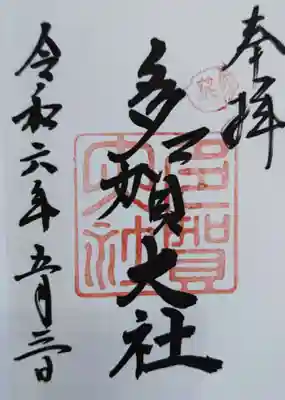 奉拝
多賀大社
令和六年五月三日
多賀大社